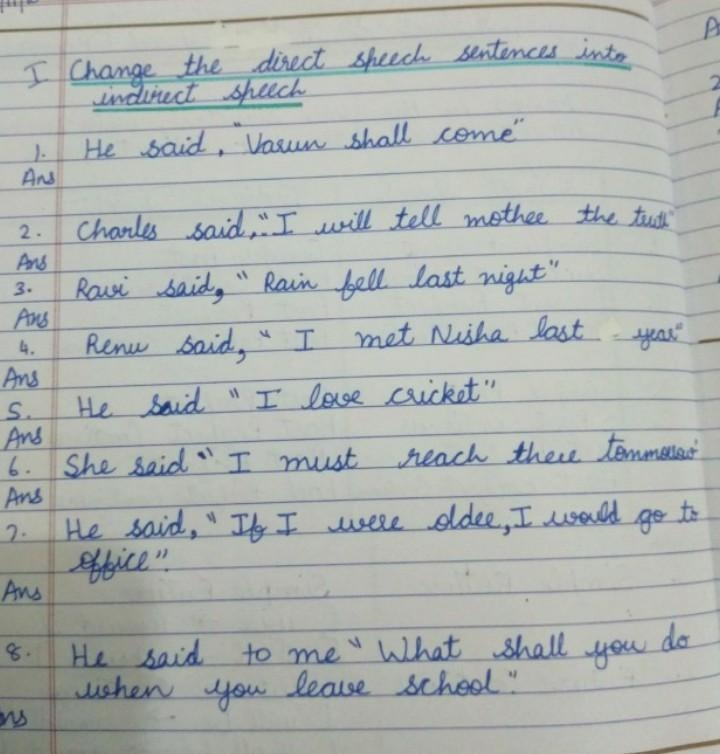 I Change the direct speech sentences into
indirect speech
1. He said, "Varun shall come"
Ans
2. Charles said, "I will tell mother the truth"
Ans
3. Ravi said, "Rain fell last night"
Ans
4. Renu said, "I met Nisha last year"
Ans
5. He said "I love cricket"
Ans
6. She said "I must reach there tommorow"
Ans
7. He said, "If I were older, I would go to
office".
Ans
8. He said to me "What shall you do
when you leave school."
ns